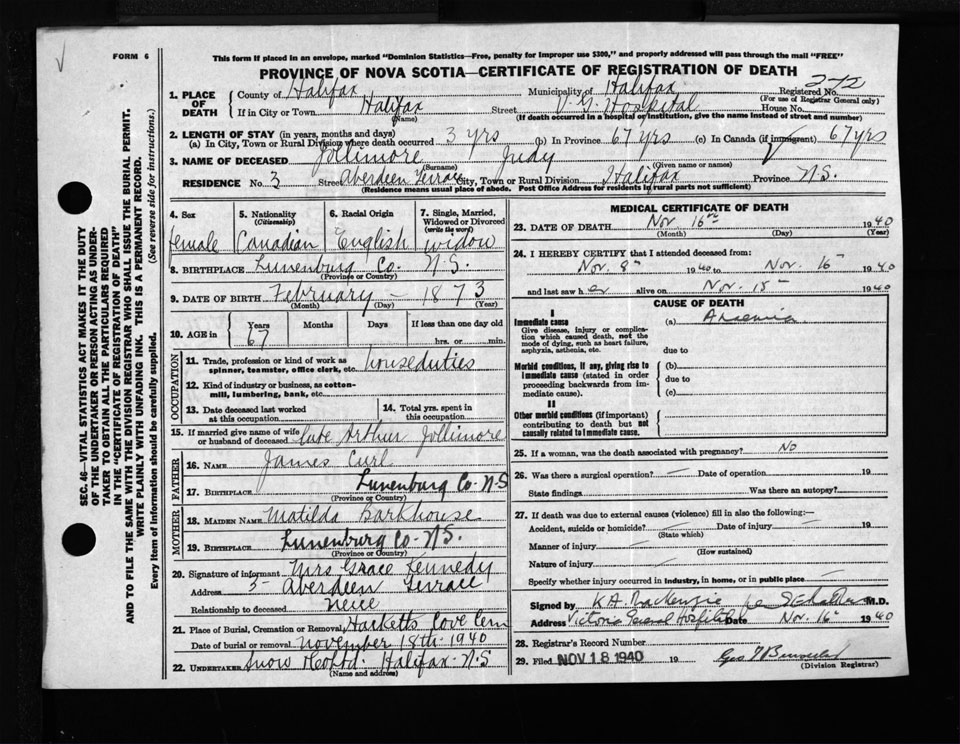 FORM 6
This form if placed in an envelope, marked "Dominion Statistics—Free, penalty for improper use $300," and properly addressed will pass through the mail "FREE"
PROVINCE OF NOVA SCOTIA—CERTIFICATE OF REGISTRATION OF DEATH
1. PLACE OF DEATH
County of Halifax Municipality of Halifax Registered No.
(For use of Registrar General only)
If in City or Town Halifax Street V. G. Hospital House No.
(Name) (If death occurred in a hospital or institution, give the name instead of street and number)
2. LENGTH OF STAY (in years, months and days)
(a) In City, Town or Rural Division where death occurred 3 yrs (b) In Province 67 yrs (c) In Canada (if immigrant) 67 yrs
3. NAME OF DECEASED Jollimore Judy
(Surname) (Given name or names)
RESIDENCE No. 3 Street Aberdeen Terrace City, Town or Rural Division Halifax Province N.S.
(Residence means usual place of abode. Post Office Address for residents in rural parts not sufficient)
4. Sex 5. Nationality (Citizenship) 6. Racial Origin 7. Single, Married, Widowed or Divorced (write the word)
female Canadian English widow
8. BIRTHPLACE Lunenburg Co. N.S.
(Province or Country)
9. DATE OF BIRTH February – 1873
(Month) (Day) (Year)
10. AGE in Years Months Days If less than one day old
67 hrs. or min.
OCCUPATION
11. Trade, profession or kind of work as spinner, teamster, office clerk, etc. houseduties
12. Kind of industry or business, as cotton-mill, lumbering, bank, etc.
13. Date deceased last worked at this occupation
14. Total yrs. spent in this occupation
15. If married give name of wife or husband of deceased late Arthur Jollimore
FATHER
16. NAME James Curl
17. BIRTHPLACE Lunenburg Co. N.S
(Province or Country)
MOTHER
18. MAIDEN NAME Matilda Barkhouse
19. BIRTHPLACE Lunenburg Co. N.S.
(Province or Country)
20. Signature of informant Mrs Grace Kennedy
Address Aberdeen Terrace
Relationship to deceased neice
21. Place of Burial, Cremation or Removal Hacketts Cove Cem
Date of burial or removal November 18th 1940
22. UNDERTAKER Snow & Co Ltd. Halifax N.S
(Name and address)
MEDICAL CERTIFICATE OF DEATH
23. DATE OF DEATH Nov. 16 1940
(Month) (Day) (Year)
24. I HEREBY CERTIFY that I attended deceased from:
Nov. 8 1940 to Nov. 16 1940
and last saw her alive on Nov. 15 1940
CAUSE OF DEATH
I
Immediate cause (a)
Give disease, injury or complication which caused death, not the mode of dying, such as heart failure, asphyxia, asthenia, etc.
due to
Morbid conditions, if any, giving rise to immediate cause (stated in order proceeding backwards from immediate cause).
(b)
due to
(c)
II
Other morbid conditions (if important) contributing to death but not causally related to immediate cause.
25. If a woman, was the death associated with pregnancy? No
26. Was there a surgical operation? — Date of operation 19
State findings Was there an autopsy?
27. If death was due to external causes (violence) fill in also the following:—
Accident, suicide or homicide? — Date of injury — 19
(State which)
Manner of injury —
(How sustained)
Nature of injury —
Specify whether injury occurred in industry, in home, or in public place —
Signed by K A MacKenzie M.D.
Address Victoria General Hospital Date Nov. 16 1940
28. Registrar's Record Number
29. Filed NOV 18 1940 19
(Division Registrar)
SEC. 46—VITAL STATISTICS ACT MAKES IT THE DUTY
OF THE UNDERTAKER OR PERSON ACTING AS UNDER-
TAKER TO OBTAIN ALL THE PARTICULARS REQUIRED
IN THE "CERTIFICATE OF REGISTRATION OF DEATH"
AND TO FILE THE SAME WITH THE DIVISION REGISTRAR WHO SHALL ISSUE THE BURIAL PERMIT.
WRITE PLAINLY WITH UNFADING INK. THIS IS A PERMANENT RECORD.
Every item of information should be carefully supplied. (See reverse side for instructions.)